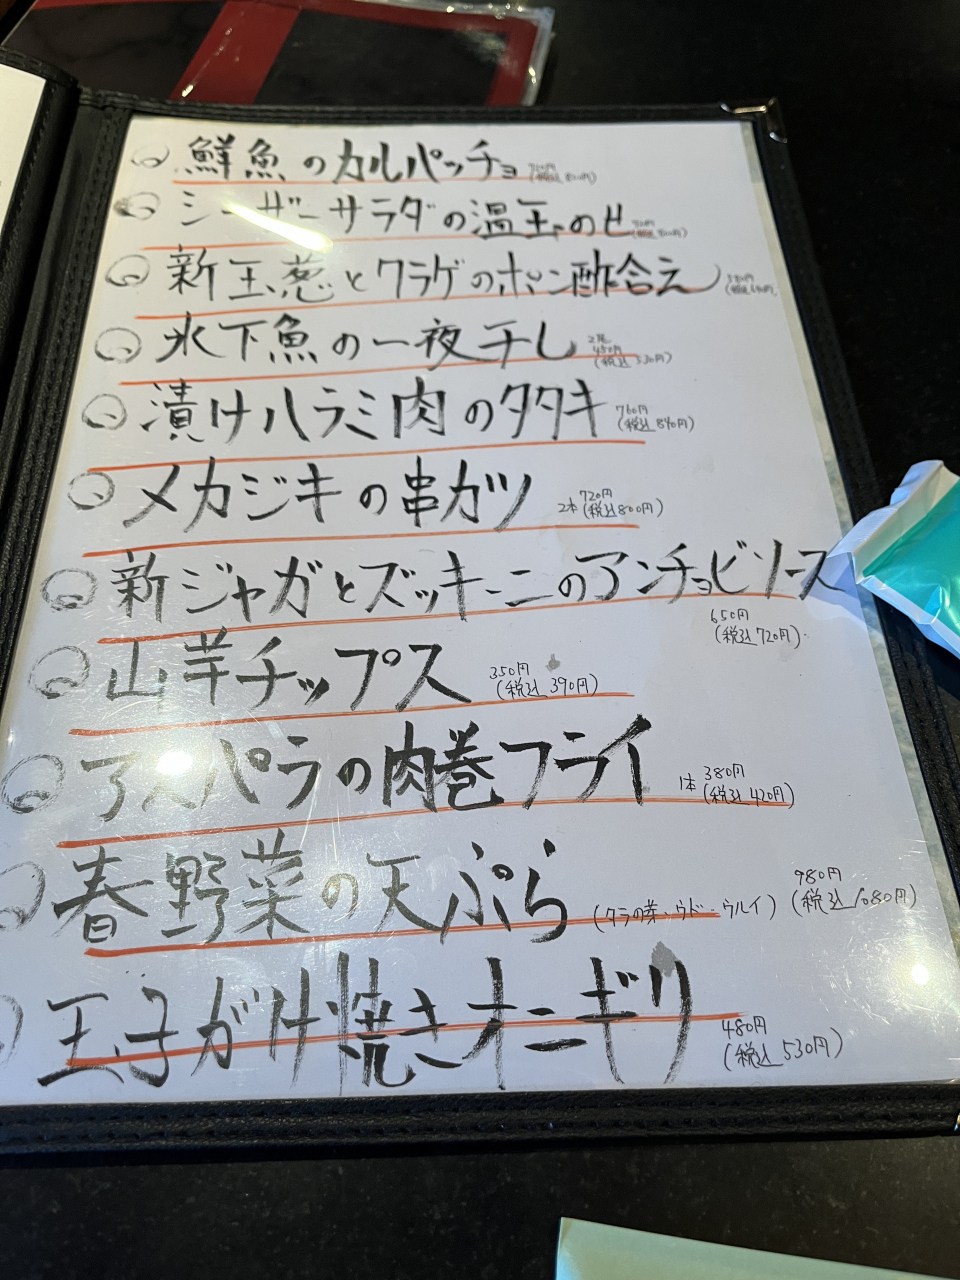 鮮魚のカルパッチョ
シーザーサラダの温玉のせ
新玉葱とクラゲのポン酢合え
氷下魚の一夜干し 2尾 450円 (税込 530円)
漬けハラミ肉のタタキ 760円 (税込 840円)
メカジキの串カツ 2本 720円 (税込 800円)
新ジャガとズッキーニのアンチョビソース
650円
(税込 720円)
山芋チップス 350円 (税込 390円)
アスパラの肉巻フライ 1本 380円 (税込 420円)
春野菜の天ぷら (タラの芽・ウド・ウルイ) 980円 (税込 1080円)
玉子がけ焼きオニギリ 480円 (税込 530円)